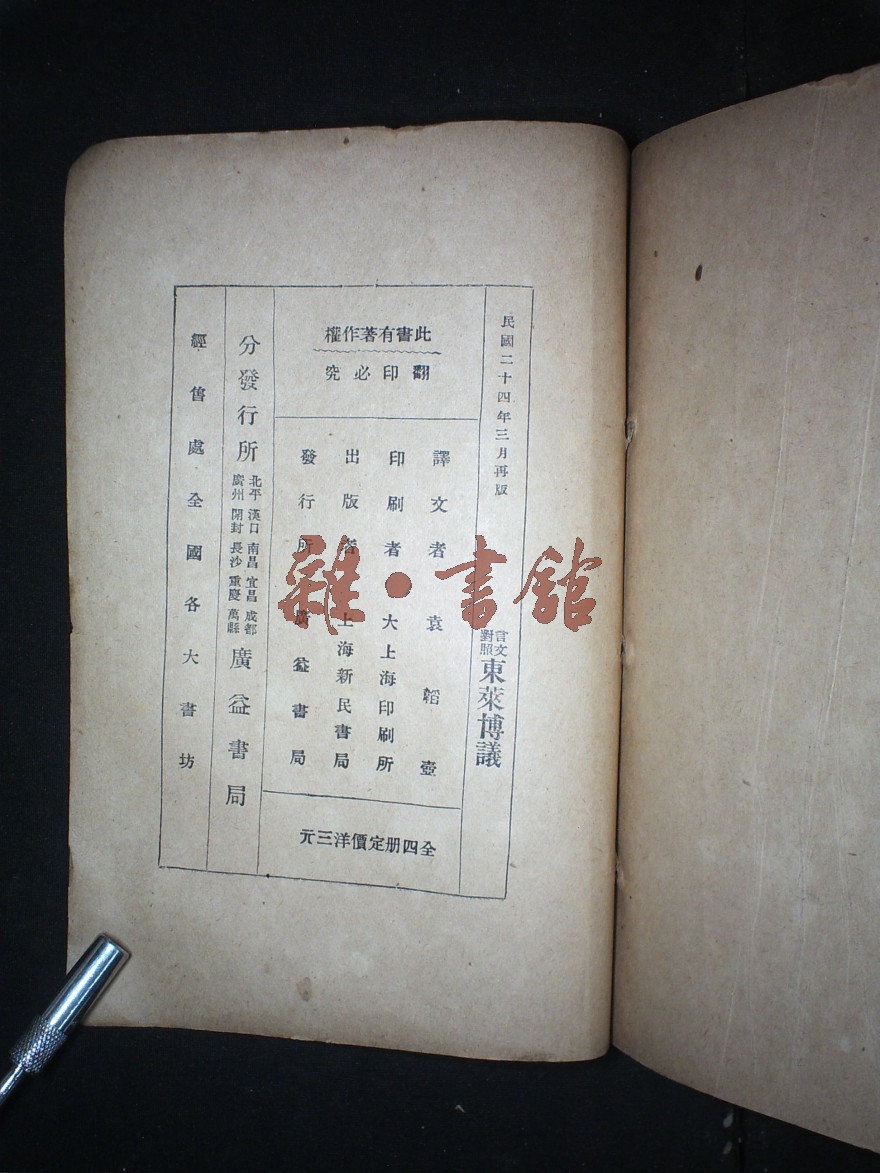 民國二十四年三月再版
言文對照 東萊博議
此書有著作權
翻印必究
譯文者 袁韜壺
印刷者 大上海印刷所
出版者 上海新民書局
發行所 廣益書局
全四册定價洋三元
分發行所 北平 漢口 南昌 宜昌 成都 廣州 開封 長沙 重慶 萬縣 廣益書局
經售處全國各大書坊
雜·書館